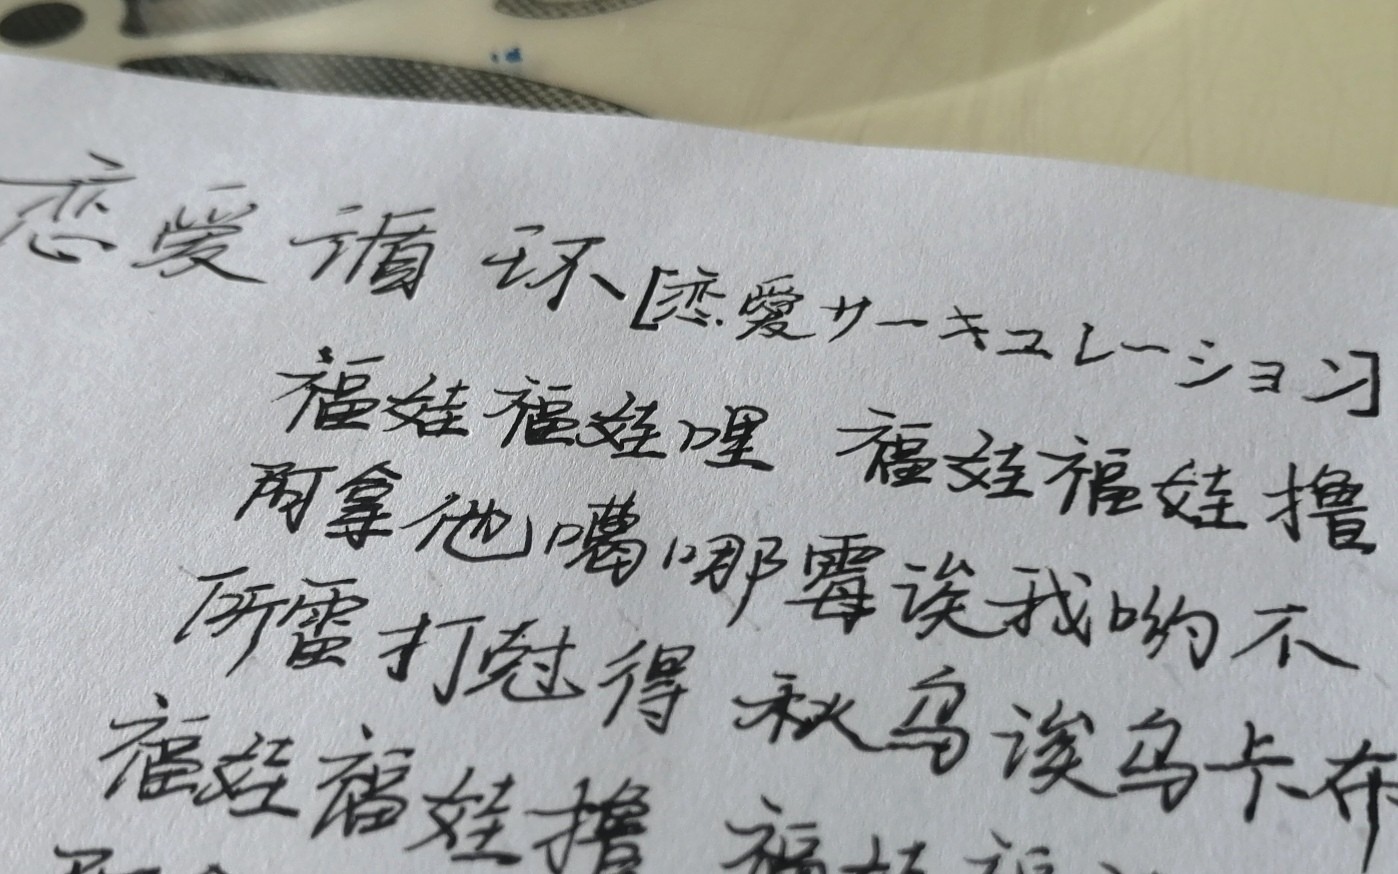 恋爱循环[恋愛サーキュレーション]
福娃福娃哩 福娃福娃撸
阿拿他噶哪霉诶我哟不
所雷打尅得 秋乌诶乌卡布
福娃福娃撸 福娃福